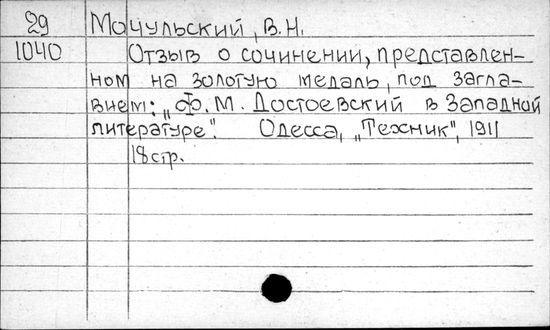 29 Мочульский, В.Н.
1040 Отзыв о сочинении, представлен-
ном на золотую медаль, под загла-
вием: „Ф.М. Достоевский в западной
литературе". Одесса, „Техник", 1911
18 стр.